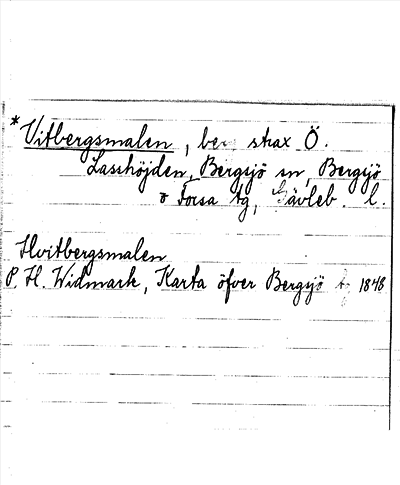 *Vitbergsmalen, be strax Ö.
Lasshöjden, Bergsjö sn, Bergsjö
o Forsa tg, Gävleb. l.
Hvitbergsmalen
P. H. Widmark, Karta öfver Bergsjö 1848